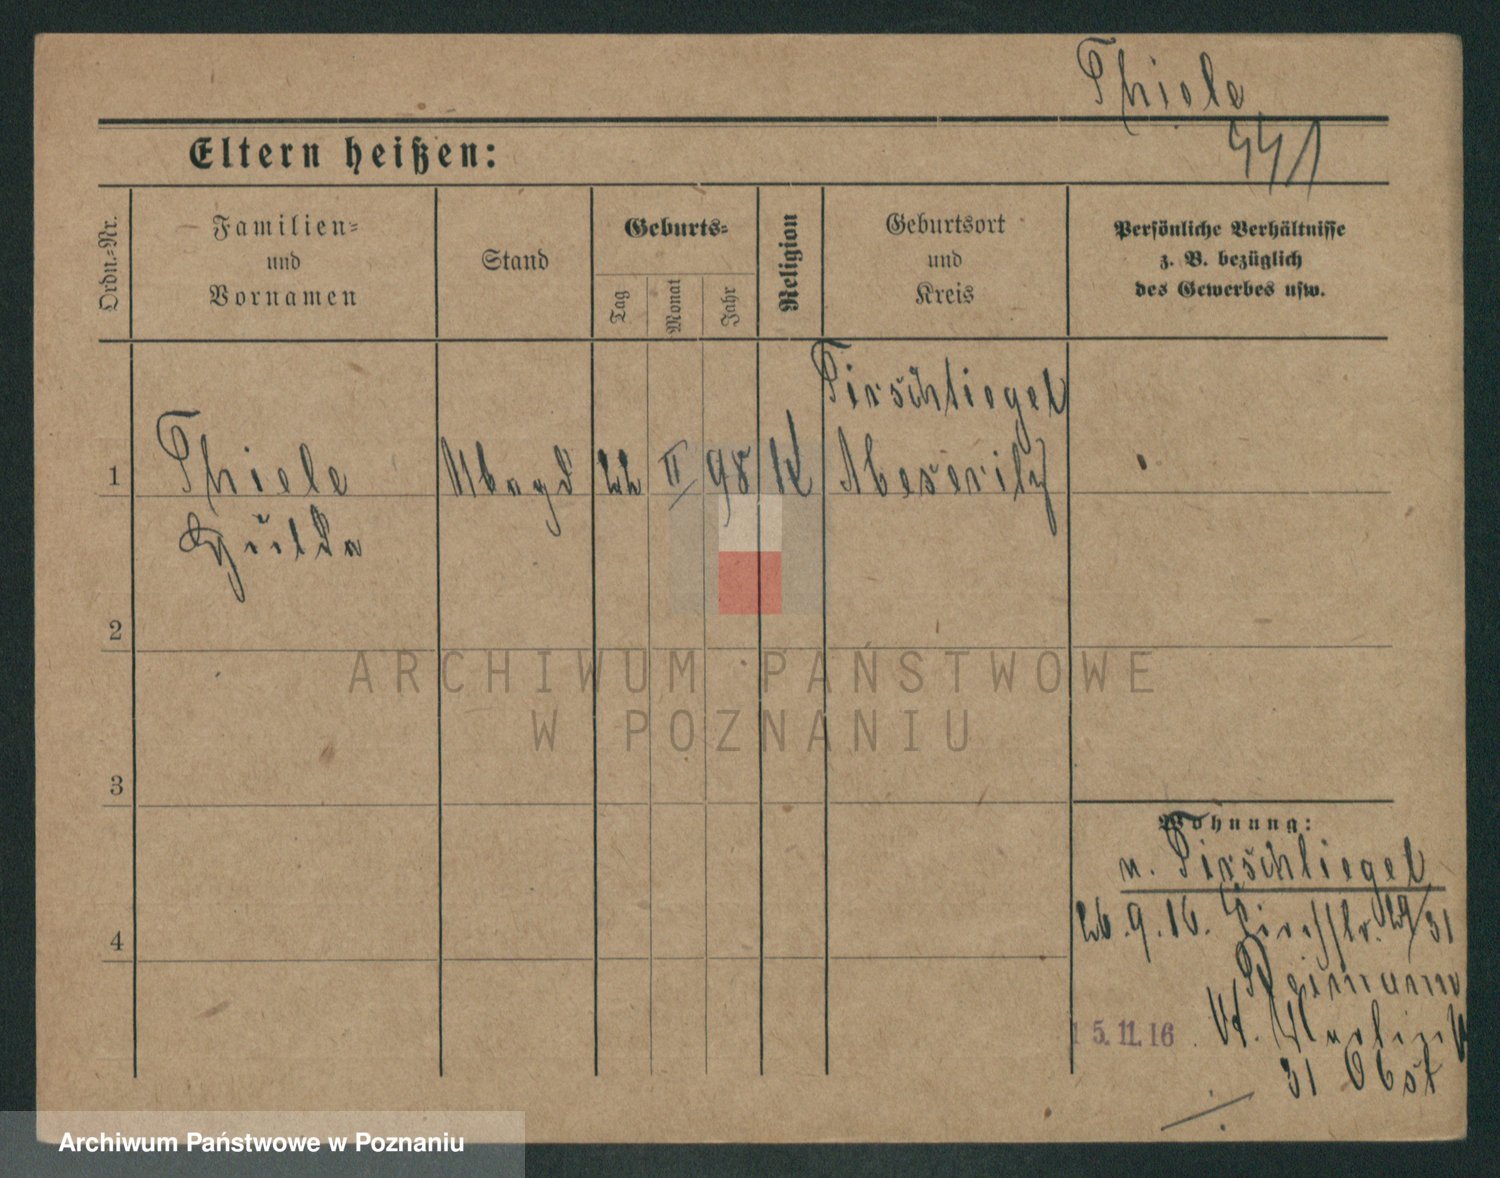 Thiele
441
Eltern heißen:
Ordn.-Nr.
Familien-
und
Vornamen
Stand
Geburts-
Tag
Monat
Jahr
Religion
Geburtsort
und
Kreis
Persönliche Verhältnisse
z. B. bezüglich
des Gewerbes usw.
Tirschtiegel
1 Thiele Magd 22 II 98 K Meseritz
Hulda
2
ARCHIWUM PAŃSTWOWE
W POZNANIU
3
Wohnung:
n. Tirschtiegel
4
26.9.16. 29/31
15.11.16. St. Martin
31 Obst
Archiwum Państwowe w Poznaniu